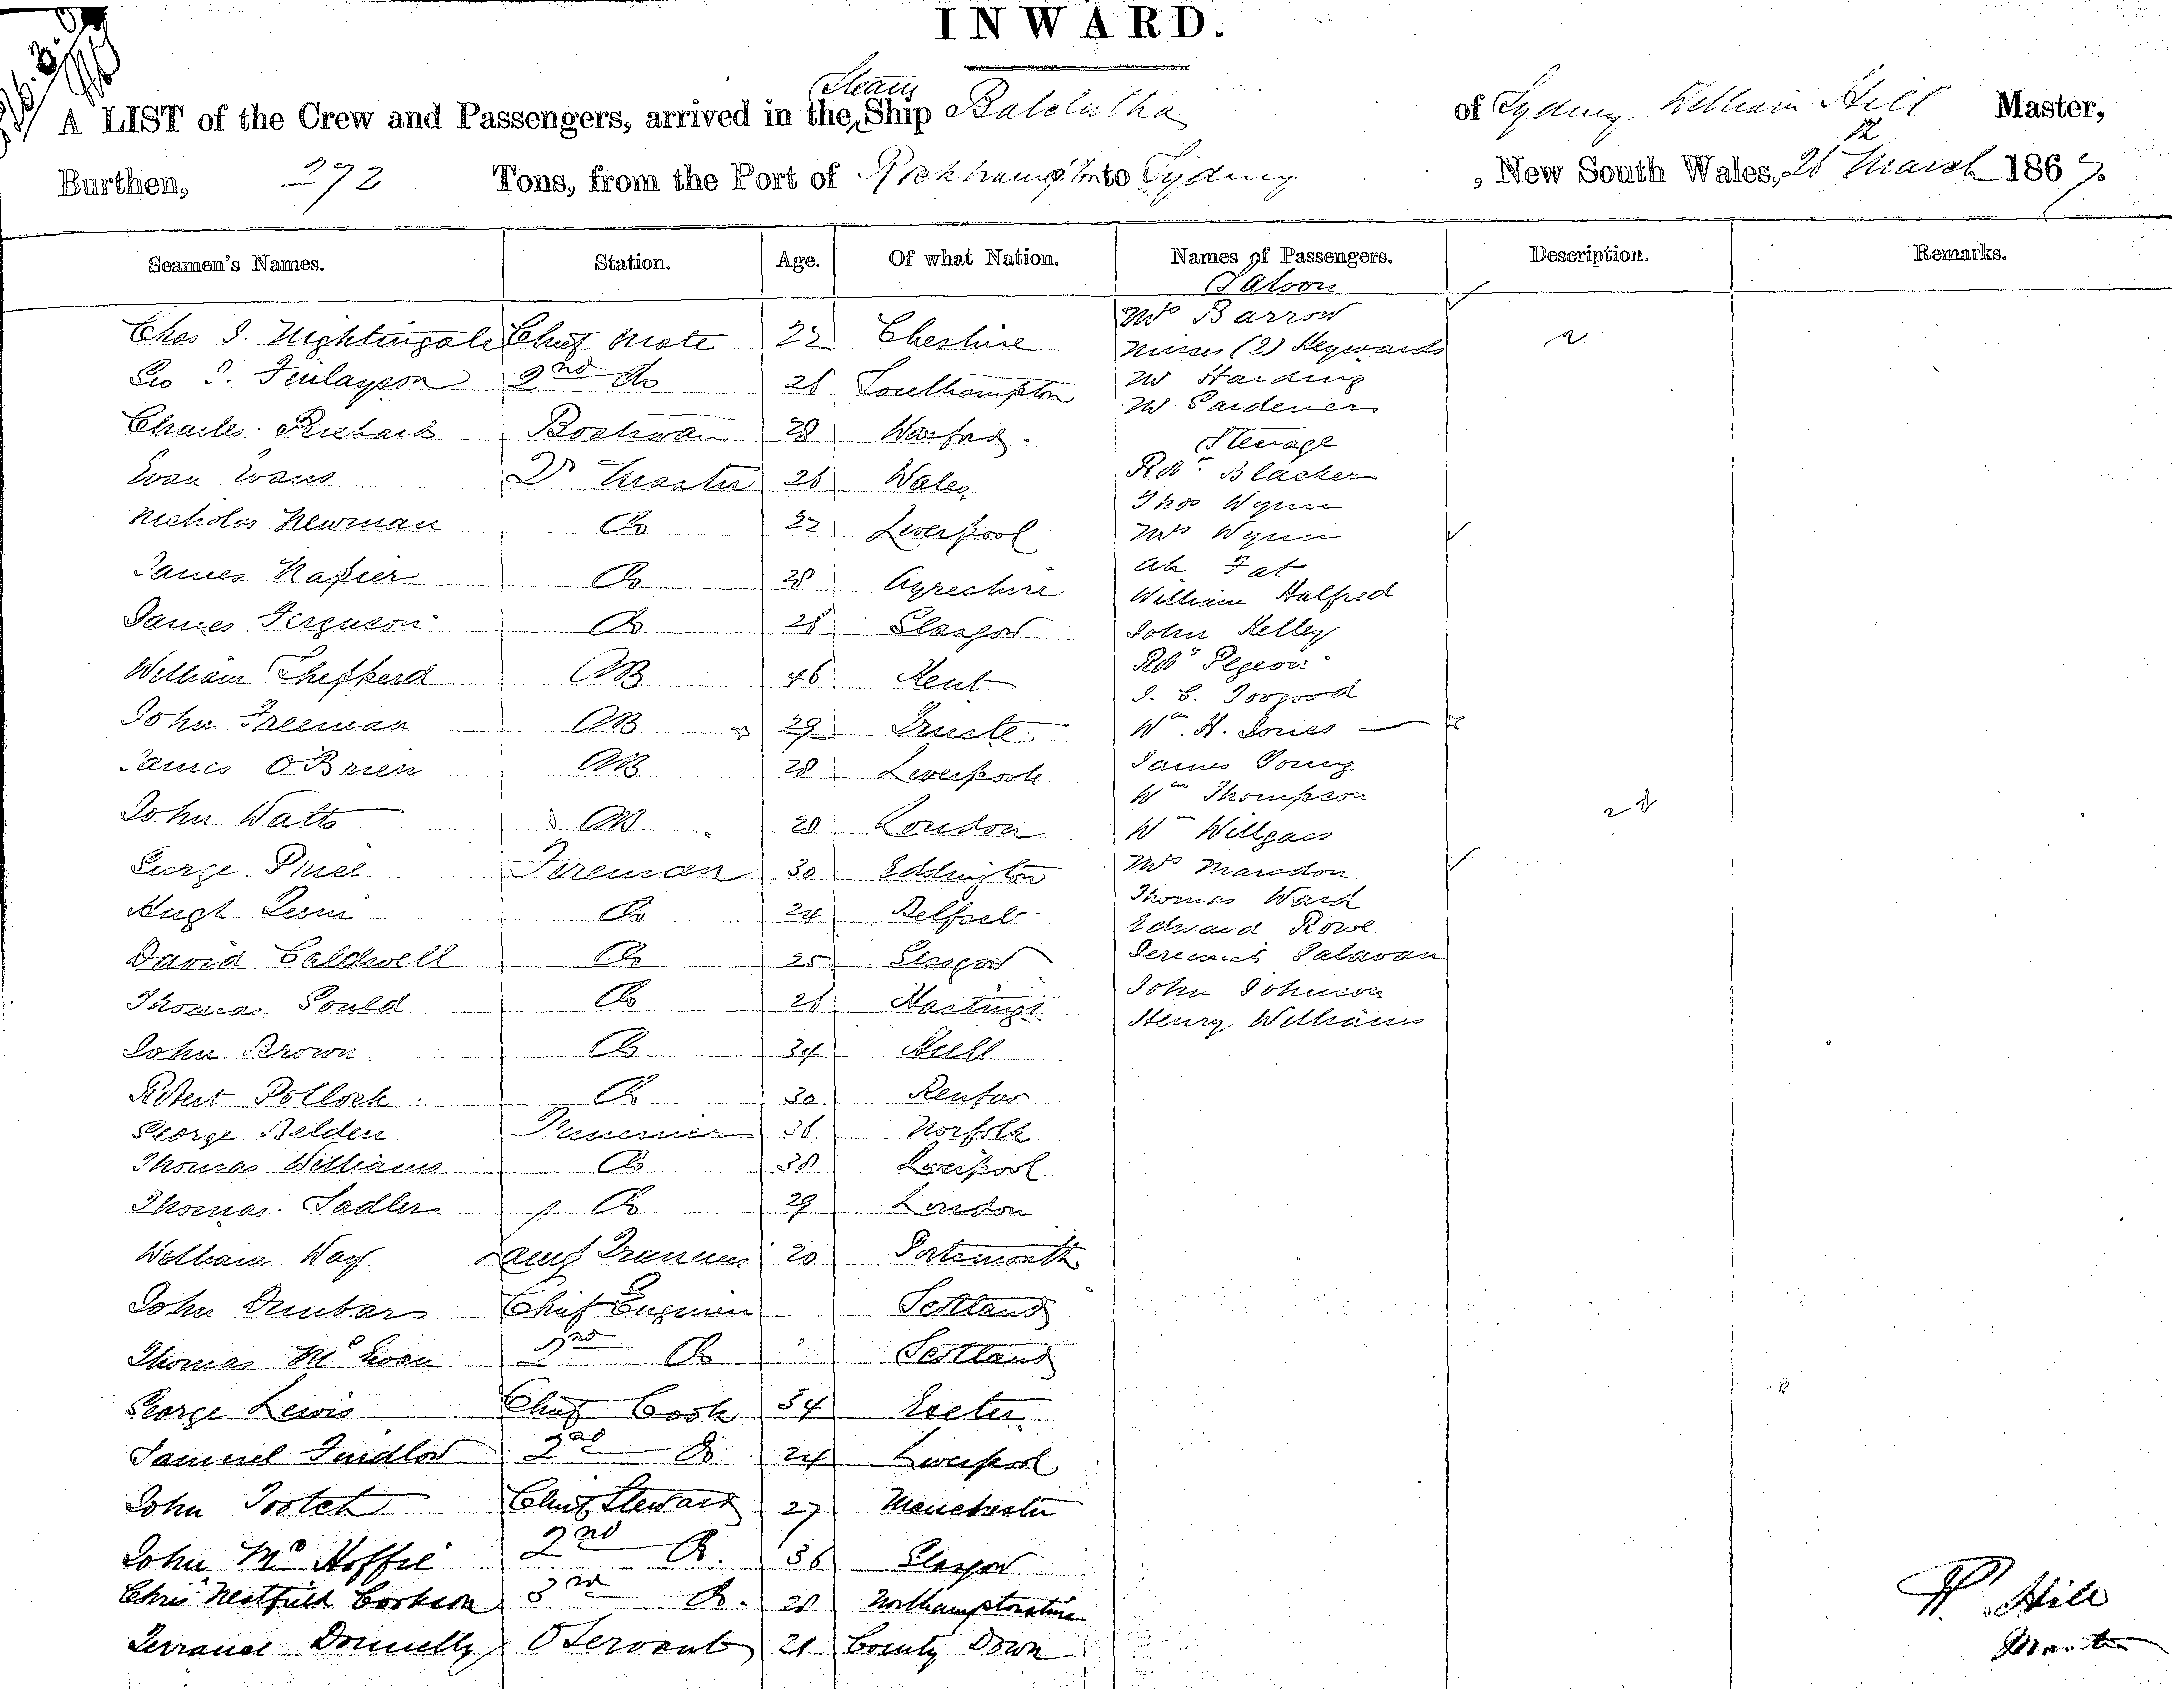 INWARD.
Steam
A LIST of the Crew and Passengers, arrived in the Ship Balclutha of Sydney William Hill Master,
Burthen, 272 Tons, from the Port of Rockhampton to Sydney , New South Wales, March 1867
Seamen's Names. Station. Age. Of what Nation. Names of Passengers. Description. Remarks.
Saloon
Mrs Barrow
Chas Nightingale Chief Mate 22 Cheshire Misses (2) Heywards
Geo Finlayson 2nd Do Southampton Mr Harding
Mr Gardener
Charles Boatswain 28
Steerage
Evan Evans Master Wales Robt Blacker
Thos Wynn
Nicholas Newman Do 22 Liverpool Mrs Wynn
Ah Fat
James Napier Do 28 Ayreshire William Halfred
James Ferguson Do Glasgow John Kelley
Robt Pegeon
William Shepperd AB 46 Kent
John Freeman AB 29 Trieste Wm H. Jones
James O Brien AB 28 Liverpoole James Young
Wm Thompson
John Watts AB London Wm
George Fireman 30 Mrs Marsdon
Hugh Do 24 Belfast Thomas Ward
Edward Rowe
David Caldwell Do 25 Glasgow
Thomas Gould Do Hastings John Johnson
Henry Williams
John Brown Do 34 Hull
Robert Pollock Do 30
George Belden Trimmer Norfolk
Thomas Williams Do Liverpool
Thomas Sadler Do 29 London
William Way Trimmer 20 Portsmouth
John Dunbar Chief Engineer Scotland
Thomas McEwan 2nd Do Scotland
George Lewis Chief Cook 34 Exeter
Samuel Findlow 2nd Do 24 Liverpool
John Chief Steward 27 Manchester
John McHoffie 2nd Do. 36 Glasgow
Cookson 3rd Do. Northamptonshire
Donnelly Servant 21 County Down
W. Hill
Master